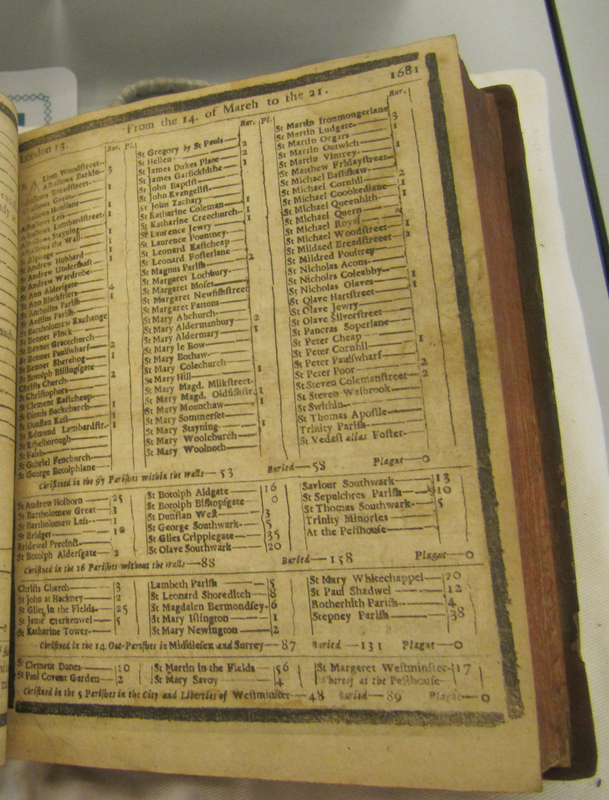 London 13. From the 14. of March to the 21. 1681
Bur. Pl.
Alban Woodstreet
Alhallows Barkin 3
Alhallows Breadstreet
Alhallows Great 1
Alhallows Honylane
Alhallows Less 1
Alhallows Lumbardstreet
Alhallows Staining 1
Alhallows the Wall 1
St Alphage
St Andrew Hubbard
St Andrew Undershaft
St Andrew Wardrobe
St Ann Aldersgate 4
St Ann Blackfriers 1
St Antholins Parish
St Austins Parish
St Bartholomew Exchange
St Bennet Finck
St Bennet Gracechurch
St Bennet Paulswharf 2
St Bennet Sherehog 1
St Botolph Billingsgate
Christs Church 2
St Christophers
St Clement Eastcheap
St Dionis Backchurch 1
St Dunstan East 1
St Edmund Lumbardstr.
St Ethelborough
St Faith
St Gabriel Fenchurch
St George Botolphlane
Bur. Pl.
St Gregory by St Pauls 2
St Hellen
St James Dukes Place 2
St James Garlickhithe 1
St John Baptist
St John Evangelist
St John Zachary
St Katharine Coleman 1
St Katharine Creechurch 1
St Laurence Jewry
St Laurence Pountney
St Leonard Eastcheap
St Leonard Fosterlane 2
St Magnus Parish
St Margaret Lothbury
St Margaret Moses
St Margaret Newfishstreet
St Margaret Pattons
St Mary Abchurch
St Mary Aldermanbury 2
St Mary Aldermary 1
St Mary le Bow
St Mary Bothaw
St Mary Colechurch
St Mary Hill 1
St Mary Magd. Milkstreet
St Mary Magd. Oldfishstr. 1
St Mary Mounthaw
St Mary Sommerset
St Mary Stayning 1
St Mary Woolchurch
St Mary Woolnoth
Bur.
St Martin Ironmongerlane
St Martin Ludgate 3
St Martin Orgars 1
St Martin Outwich
St Martin Vintrey 1
St Matthew Fridaystreet
St Michael Bassishaw
St Michael Cornhil 2
St Michael Crookedlane 1
St Michael Queenhith 1
St Michael Quern
St Michael Royal
St Michael Woodstreet 1
St Mildred Breadstreet 1
St Mildred Poultrey
St Nicholas Acons
St Nicholas Coleabby 1
St Nicholas Olaves 1
St Olave Hartstreet
St Olave Jewry
St Olave Silverstreet
St Pancras Soperlane
St Peter Cheap 1
St Peter Cornhil
St Peter Paulswharf
St Peter Poor 2
St Steven Colemanstreet 2
St Steven Walbrook
St Swithin
St Thomas Apostle
Trinity Parish
St Vedast alias Foster
Christned in the 97 Parishes within the walls 53 Buried 58 Plague 0
St Andrew Holborn 25
St Bartholomew Great 3
St Bartholomew Less 1
St Bridget
Bridewel Precinct
St Botolph Aldersgate 2
St Botolph Aldgate 16
St Botolph Bishopsgate 0
St Dunstan West 3
St George Southwark 5
St Giles Cripplegate 35
St Olave Southwark 20
Saviour Southwark 13
St Sepulchres Parish 10
St Thomas Southwark 5
Trinity Minories
At the Pesthouse
Christned in the 16 Parishes without the walls 88 Buried 158 Plague 0
Christs Church 3
St John at Hackney 2
St Giles in the Fields 25
St Jame Clerkenwel 5
St Katharine Tower
Lambeth Parish 5
St Leonard Shoreditch 8
St Magdalen Bermondsey 6
St Mary Islington 1
St Mary Newington 2
St Mary Whitechappel 20
St Paul Shadwel 12
Rotherhith Parish 4
Stepney Parish 38
Christned in the 14 Out-Parishes in Middlesex and Surrey 87 Buried 131 Plague 0
St Clement Danes 10
St Paul Covent Garden 2
St Martin in the Fields 56
St Mary Savoy 4
St Margaret Westminster 17
Thereof at the Pesthouse
Christned in the 5 Parishes in the City and Liberties of Westminster 48 Buried 89 Plague 0